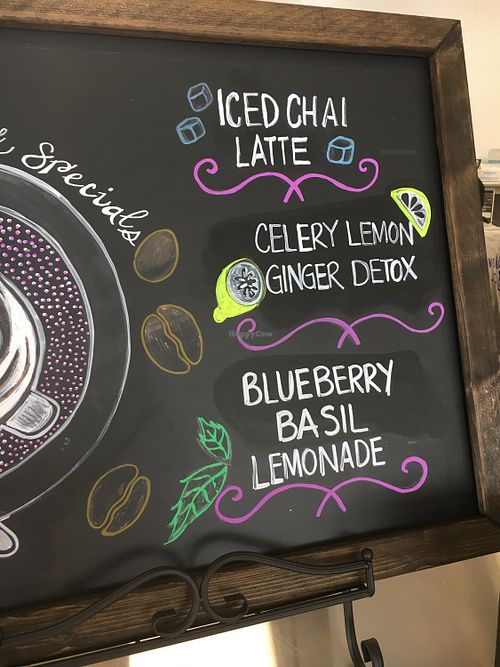 Specials
ICED CHAI
LATTE
CELERY LEMON
GINGER DETOX
BLUEBERRY
BASIL
LEMONADE
HappyCow